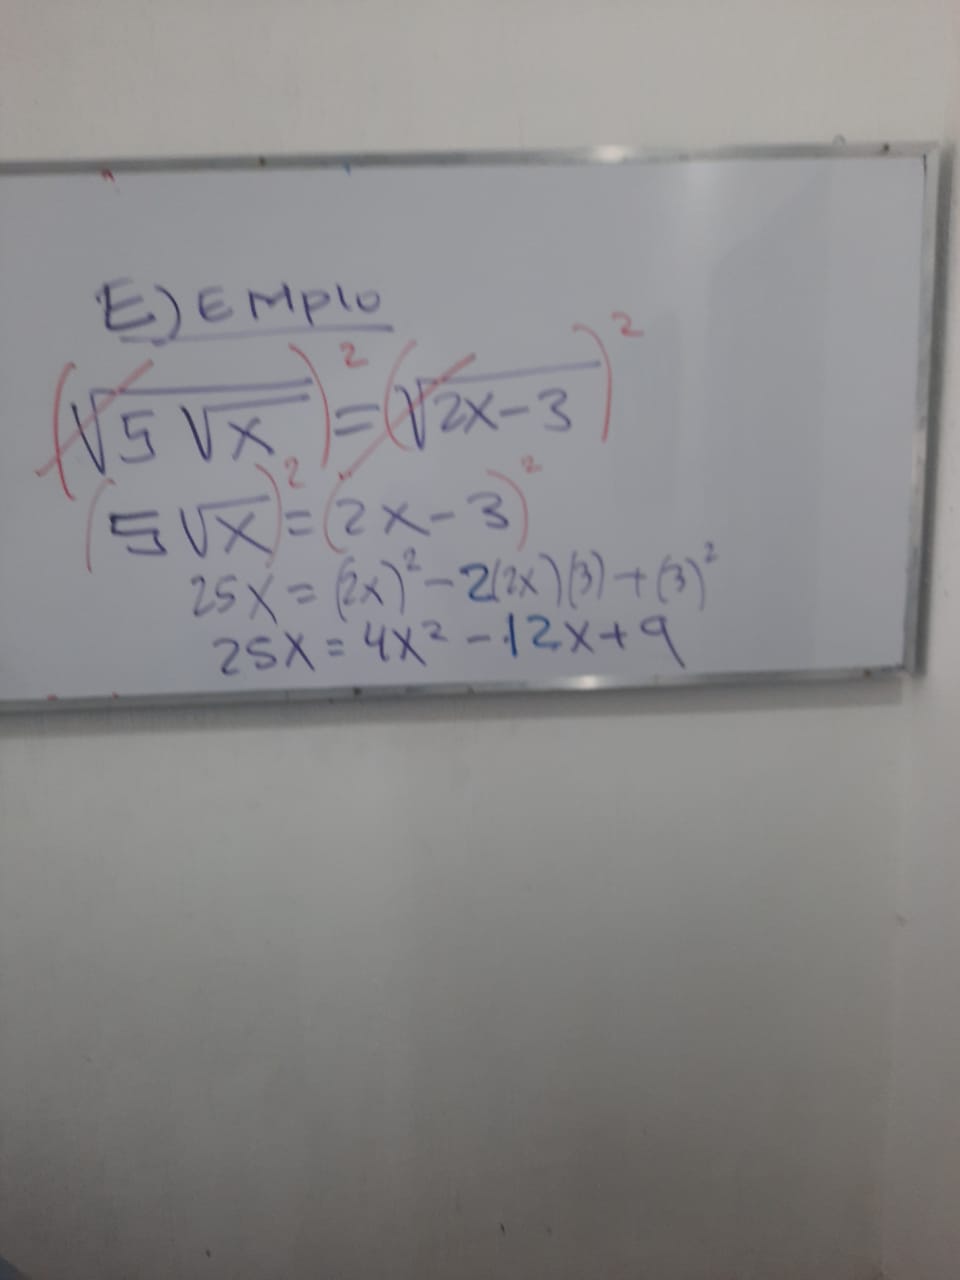 EJEMPLO
(√(5√x))² = (√(2x-3))²
(5√x)² = (2x-3)²
25x = (2x)² - 2(2x)(3) + (3)²
25x = 4x² - 12x + 9